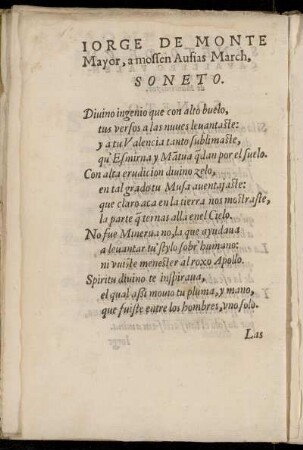 IORGE DE MONTE
Mayor, a mossen Ausias March,
SONETO.
Diuino ingenio que con alto buelo,
tus versos a las nuues leuantaste:
y a tu Valencia tanto sublimaste,
qu'Esmirna y Mãtua q̃dan por el suelo.
Con alta erudicion diuino zelo,
en tal grado tu Musa auentajaste:
que claro aca en la tierra nos mostraste,
la parte q̃ ternas alla enel Cielo.
No fue Minerua no, la que ayudaua
a leuantar tu stylo sobr'humano:
ni vuiste menester al roxo Apollo.
Spiritu diuino te inspiraua,
el qual assi mouio tu pluma, y mano,
que fuiste entre los hombres, vno solo.
Las